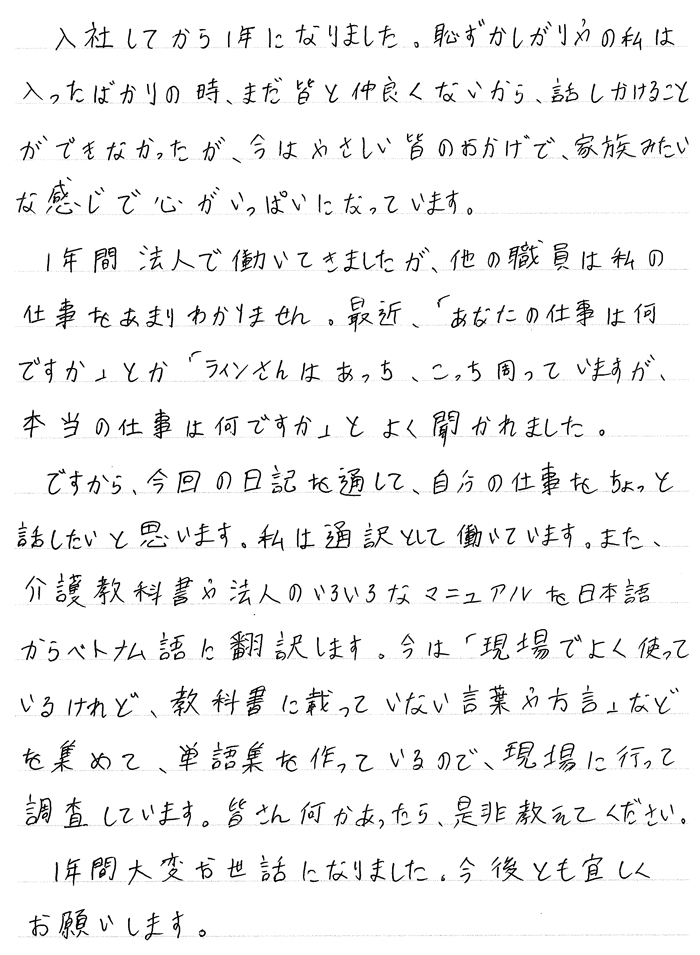 入社してから1年になりました。恥ずかしがりやの私は
入ったばかりの時、まだ皆と仲良くないから、話しかけること
ができなかったが、今はやさしい皆のおかげで、家族みたい
な感じで心がいっぱいになっています。
1年間法人で働いてきましたが、他の職員は私の
仕事をあまりわかりません。最近、「あなたの仕事は何
ですか」とか「ラインさんはあっち、こっち周っていますが、
本当の仕事は何ですか」とよく聞かれました。
ですから、今回の日記を通して、自分の仕事をちょっと
話したいと思います。私は通訳として働いています。また、
介護教科書や法人のいろいろなマニュアルを日本語
からベトナム語に翻訳します。今は「現場でよく使って
いるけれど、教科書に載っていない言葉や方言」など
を集めて、単語集を作っているので、現場に行って
調査しています。皆さん何かあったら、是非教えてください。
1年間大変お世話になりました。今後とも宜しく
お願いします。